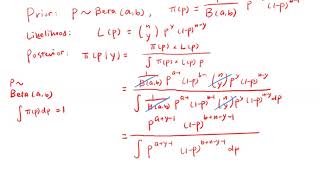 Prior: p ~ Beta(a,b), π(p) = 1/B(a,b) p^(a-1) (1-p)^(b-1)
Likelihood: L(p) = (n y) p^y (1-p)^(n-y)
Posterior: π(p|y) = π(p) × L(p) / ∫ π(p) × L(p) dp
= 1/B(a,b) p^(a-1) (1-p)^(b-1) (n y) p^y (1-p)^(n-y) / ∫ 1/B(a,b) p^(a-1) (1-p)^(b-1) (n y) p^y (1-p)^(n-y) dp
= p^(a+y-1) (1-p)^(b+n-y-1) / ∫ p^(a+y-1) (1-p)^(b+n-y-1) dp
p~
Beta(a,b)
∫ π(p) dp = 1